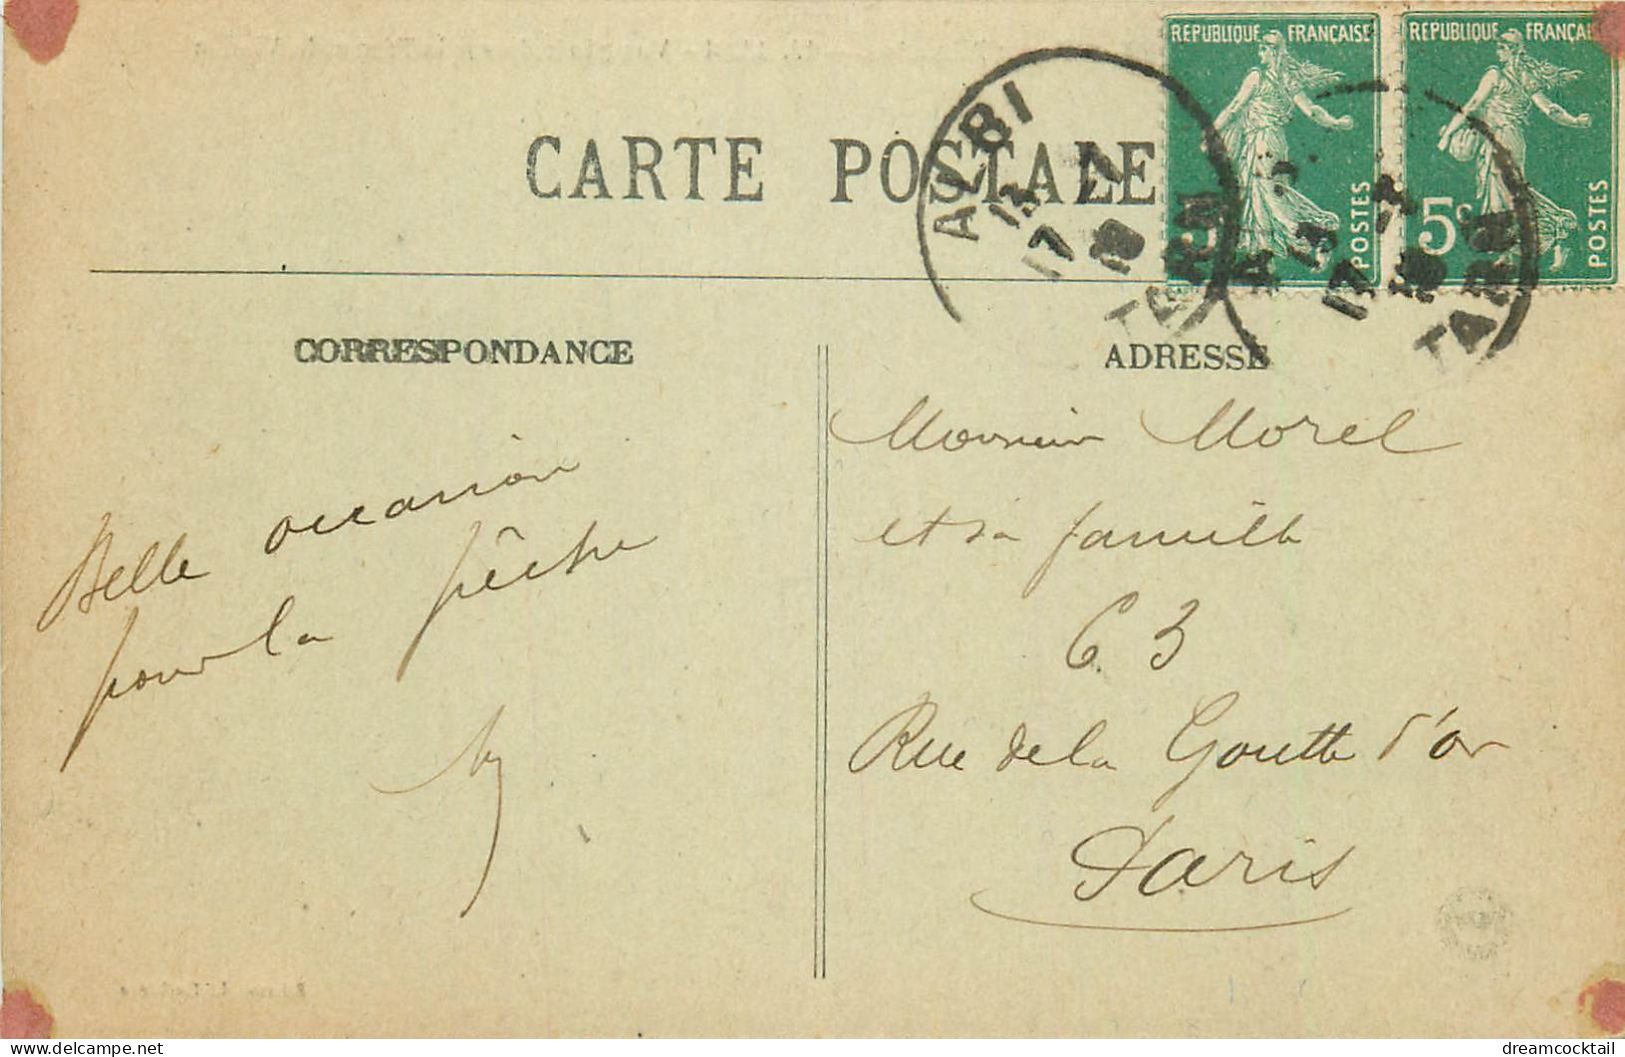 REPUBLIQUE FRANÇAISE
REPUBLIQUE FRANÇAISE
POSTES
5c POSTES
ALBI
13
17 -7
18
TARN
13
17 -7
18
TARN
CARTE POSTALE
CORRESPONDANCE
ADRESSE
Belle occasion
pour la pêche
Monsieur Morel
et sa famille
63
Rue de la Goutte d'or
Paris
delcampe.net
dreamcocktail